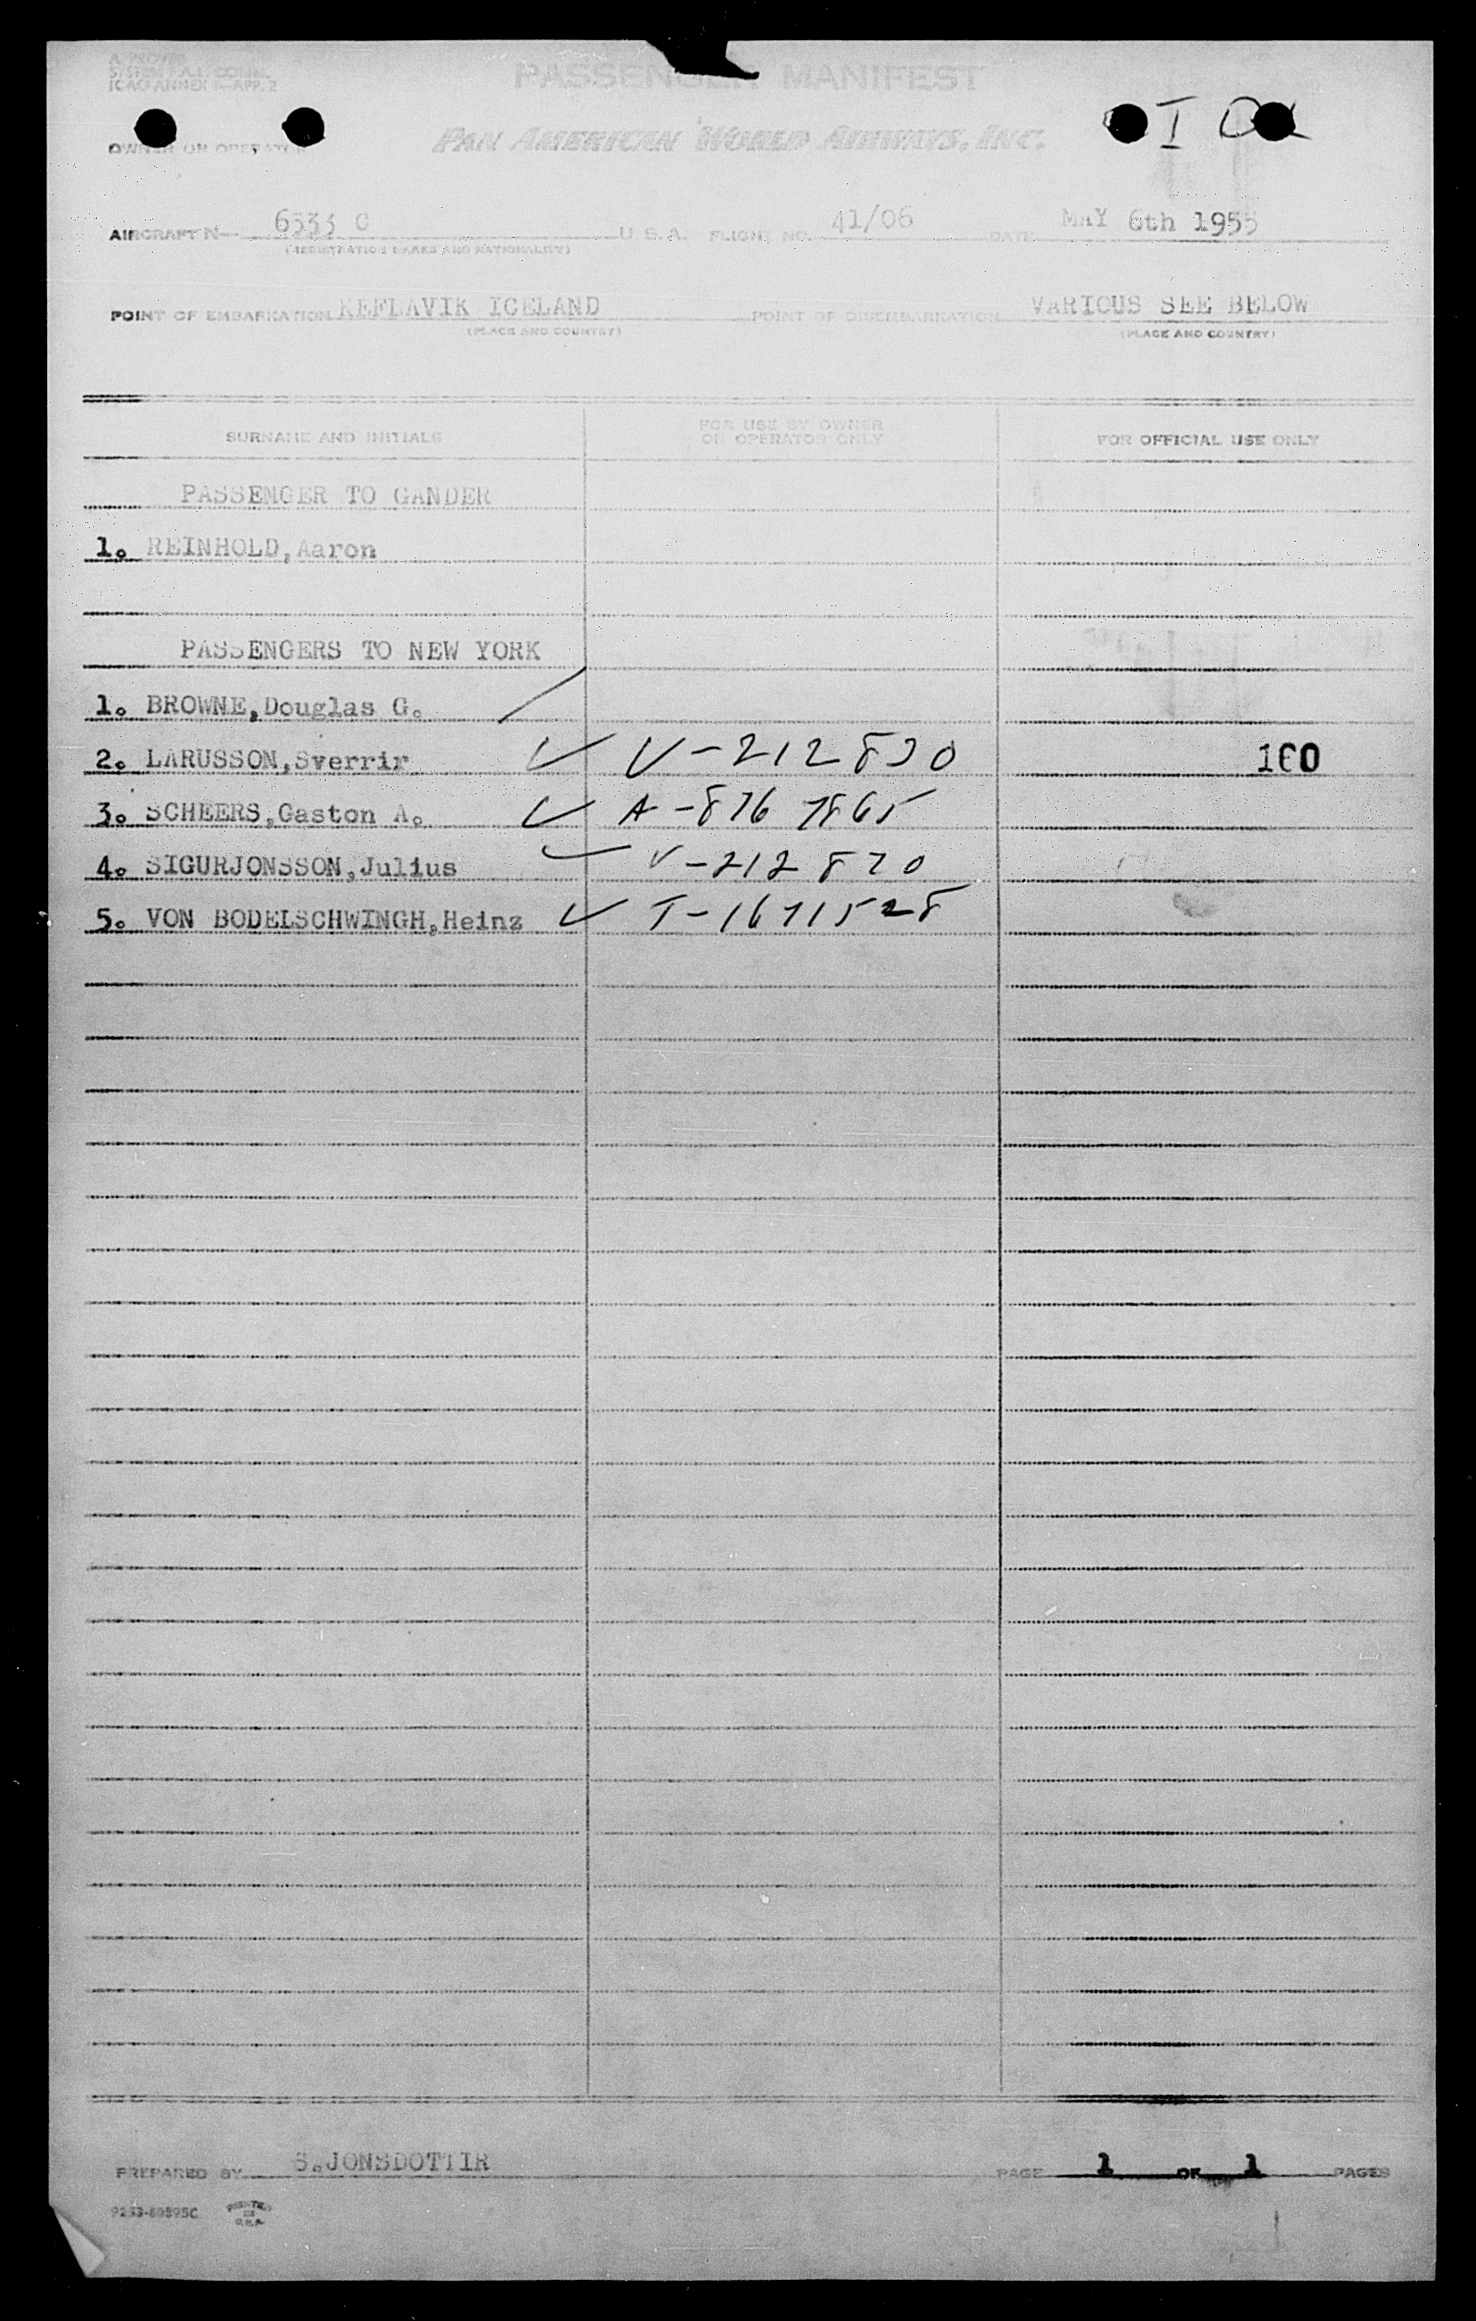 APPROVED
SYSTEM F.A.L. COMM.
ICAO ANNEX 9—APP. 2
PASSENGER MANIFEST
OWNER OR OPERATOR
PAN AMERICAN WORLD AIRWAYS, INC.
AIRCRAFT N— 6533 C U.S.A. FLIGHT NO. 41/06 DATE MAY 6th 1955
(REGISTRATION MARKS AND NATIONALITY)
POINT OF EMBARKATION KEFLAVIK ICELAND POINT OF DISEMBARKATION VARIOUS SEE BELOW
(PLACE AND COUNTRY) (PLACE AND COUNTRY)
SURNAME AND INITIALS FOR USE BY OWNER OR OPERATOR ONLY FOR OFFICIAL USE ONLY
PASSENGER TO GANDER
1. REINHOLD, Aaron
PASSENGERS TO NEW YORK
1. BROWNE, Douglas G.
2. LARUSSON, Sverrir V-212830 160
3. SCHEERS, Gaston A. A-876 7865
4. SIGURJONSSON, Julius V-212820
5. VON BODELSCHWINGH, Heinz T-1671528
PREPARED BY S. JONSDOTTIR PAGE 1 OF 1 PAGES
PRINTED IN U.S.A.